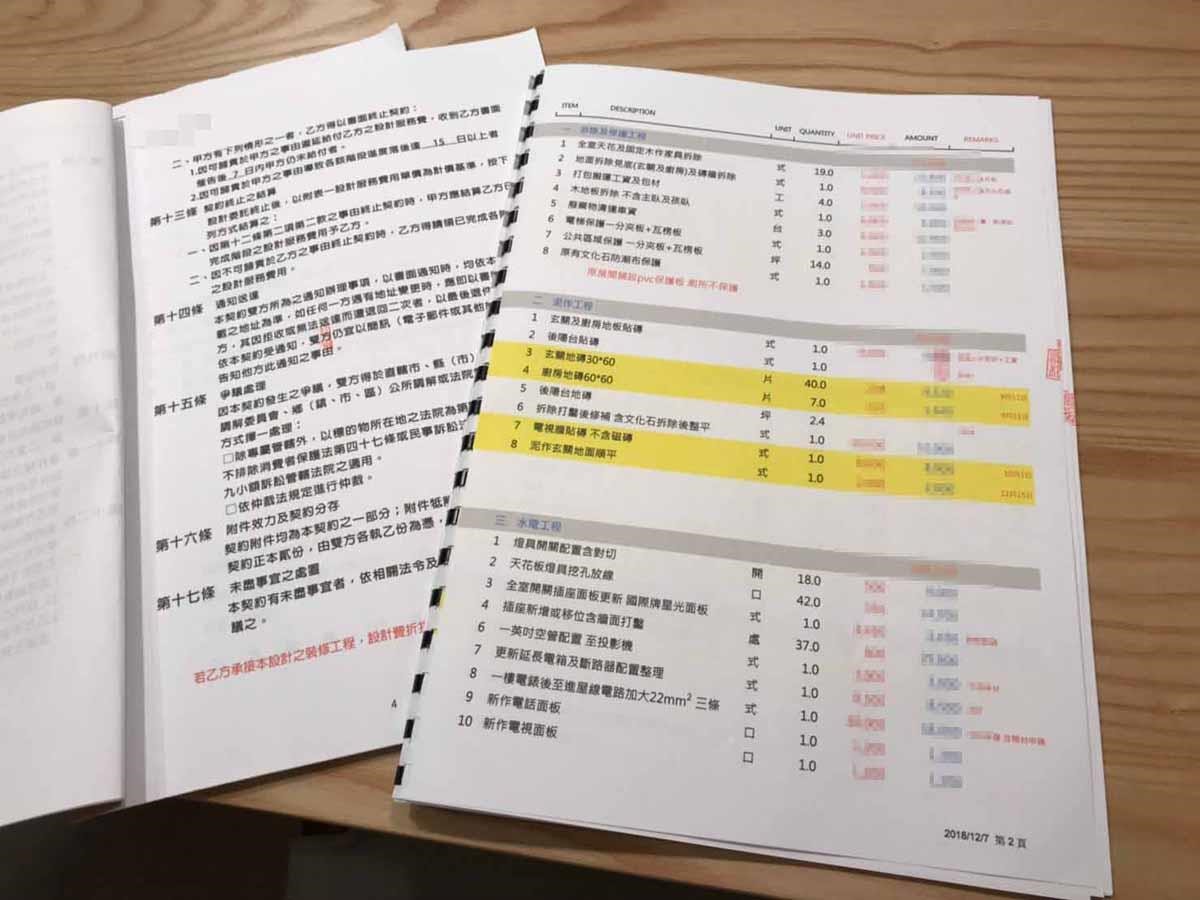 二、甲方有下列情形之一者，乙方得以書面終止契約：
1.因可歸責於甲方之事由遲延給付乙方之設計服務費，收到乙方書面
催告後 7 日內甲方仍未給付者。
2.因可歸責於甲方之事由導致各該階段進度落後達 15 日以上者
第十三條 契約終止之結算
設計委託終止後，以附表一設計服務費用單價為計價基準，按下
列方式結算之：
一、因第十二條第二項第二款之事由終止契約時，甲方應結算乙方已
完成階段之設計服務費用予乙方。
二、因不可歸責於乙方之事由終止契約時，乙方得請領已完成各階
之設計服務費用。
第十四條 通知送達
本契約雙方所為之通知辦理事項，以書面通知時，均依本
載之地址為準，如任何一方遇有地址變更時，應即以書
方，其因拒收或無法送達而遭退回二次者，以最後退件
依本契約受通知，雙方仍宜以簡訊（電子郵件或其他
告知他方此通知之事由。
第十五條 爭議處理
因本契約發生之爭議，雙方得於直轄市、縣（市）
調解委員會、鄉（鎮、市、區）公所調解或法院
方式擇一處理：
□除專屬管轄外，以標的物所在地之法院為第
不排除消費者保護法第四十七條或民事訴訟法
九小額訴訟管轄法院之適用。
□依仲裁法規定進行仲裁。
第十六條 附件效力及契約分存
契約附件均為本契約之一部分；附件牴
契約正本貳份，由雙方各執乙份為憑，
第十七條 未盡事宜之處置
本契約有未盡事宜者，依相關法令及
議之。
若乙方承接本設計之裝修工程，設計費折
4
ITEM DESCRIPTION UNIT QUANTITY UNIT PRICE AMOUNT REMARKS
一 拆除及保護工程
1 全室天花及固定木作家具拆除 式 19.0
2 地面拆除見底(玄關及廚房)及磚牆拆除 式 1.0
3 打包搬運工資及包材 工 4.0
4 木地板拆除 不含主臥及孩臥 式 1.0
5 廢棄物清運車資 台 3.0
6 電梯保護一分夾板+瓦楞板 式 1.0
7 公共區域保護 一分夾板+瓦楞板 坪 14.0
8 原有文化石防潮布保護 式 1.0
原展開鋪設pvc保護板 廁所不保護
二 泥作工程
1 玄關及廚房地板貼磚 式 1.0
2 後陽台貼磚 式 1.0
3 玄關地磚30*60 片 40.0
4 廚房地磚60*60 片 7.0
5 後陽台地磚 坪 2.4
6 拆除打鑿後修補 含文化石拆除後整平 式 1.0
7 電視牆貼磚 不含磁磚 式 1.0
8 泥作玄關地面順平 式 1.0
12月15日
三 水電工程
1 燈具開關配置含對切 開 18.0
2 天花板燈具挖孔放線 口 42.0
3 全室開關插座面板更新 國際牌星光面板 式 1.0
4 插座新增或移位含牆面打鑿 處 37.0
6 一英吋空管配置 至投影機 式 1.0
7 更新延長電箱及斷路器配置整理 式 1.0
8 一樓電錶後至進屋線電路加大22mm² 三條 式 1.0
9 新作電話面板 口 1.0
10 新作電視面板 口 1.0
2018/12/7 第 2 頁